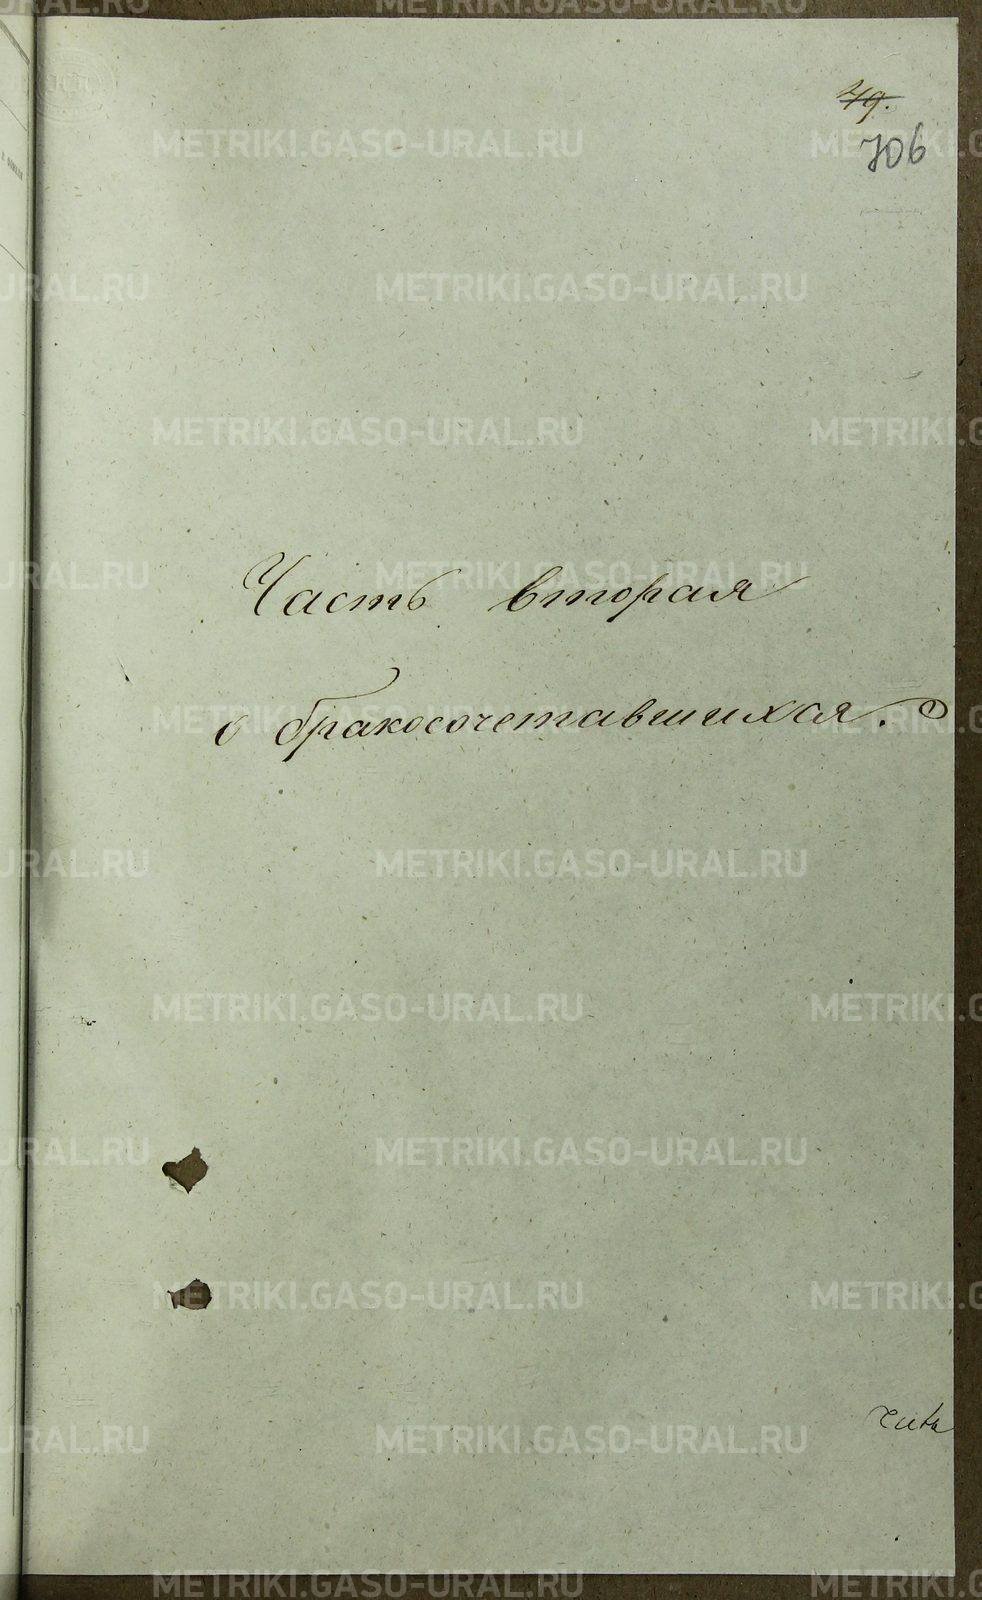 79.
706
Часть вторая
о бракосочетавшихся.
METRIKI.GASO-URAL.RU